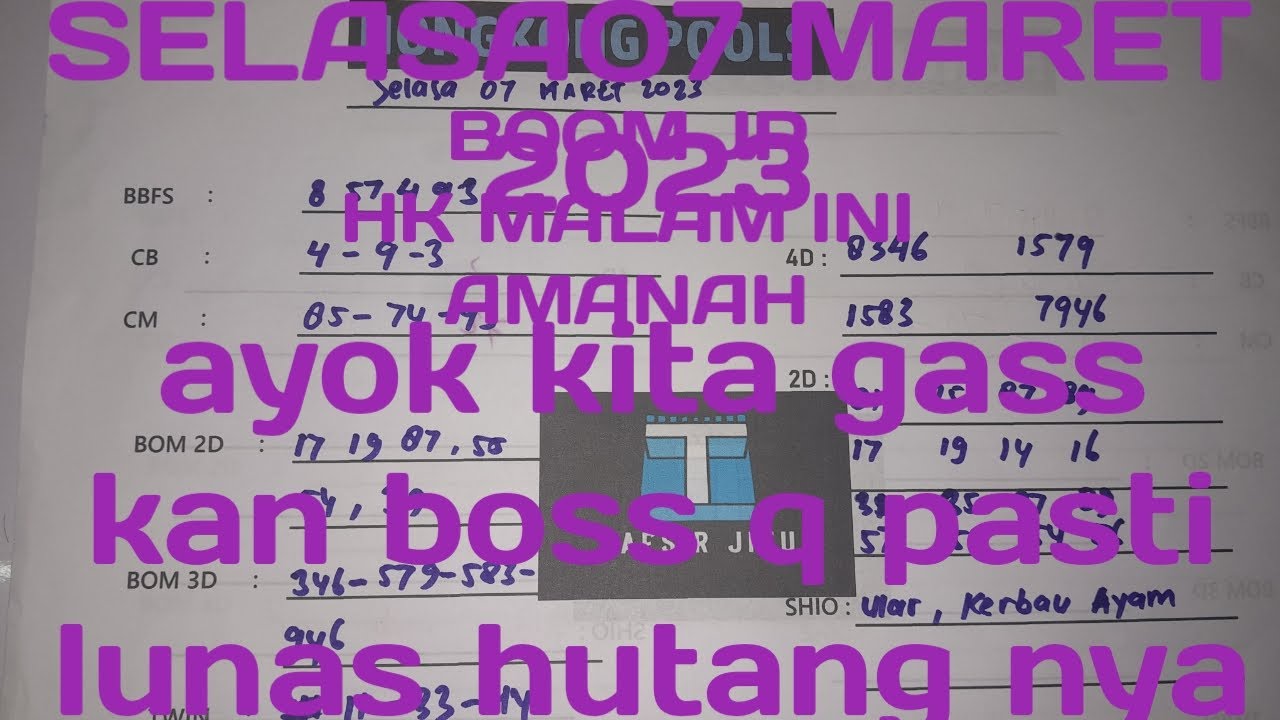 SELASA07 MARET
HONGKONG POOLS
Selasa 07 MARET 2023
BOOM JP
2023
HK MALAM INI
AMANAH
ayok kita gass
kan boss q pasti
lunas hutang nya
BBFS :
CB : 4 - 9 - 3
CM : 05 - 74 -
BOM 2D : 17 19 07, 50
BOM 3D : 346 - 579 - 583 -
946
TWIN 33 - 44
4D : 8346 1579
1583 7946
2D :
17 19 14 16
SHIO : ular, Kerbau Ayam